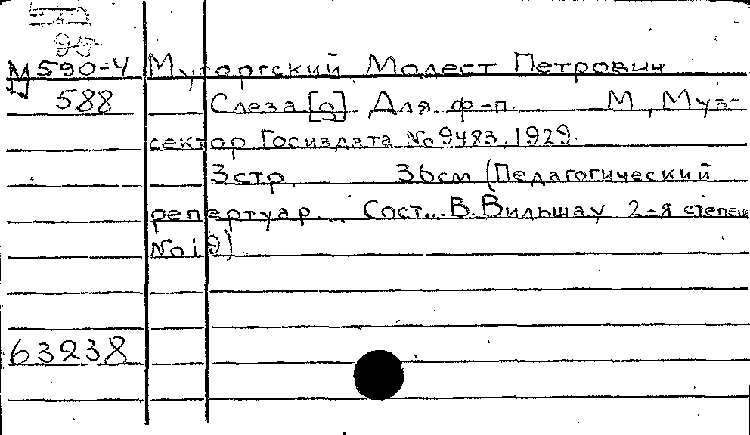 95
М 590-4 Мусоргский, Модест Петрович
588 Слеза [g]. Для ф-п. М., Муз-
сектор Госиздата No 9483, 1929.
3 стр. 36 см (Педагогический
репертуар... Сост... В. Вильшау 2-я степень
No 19)
63238